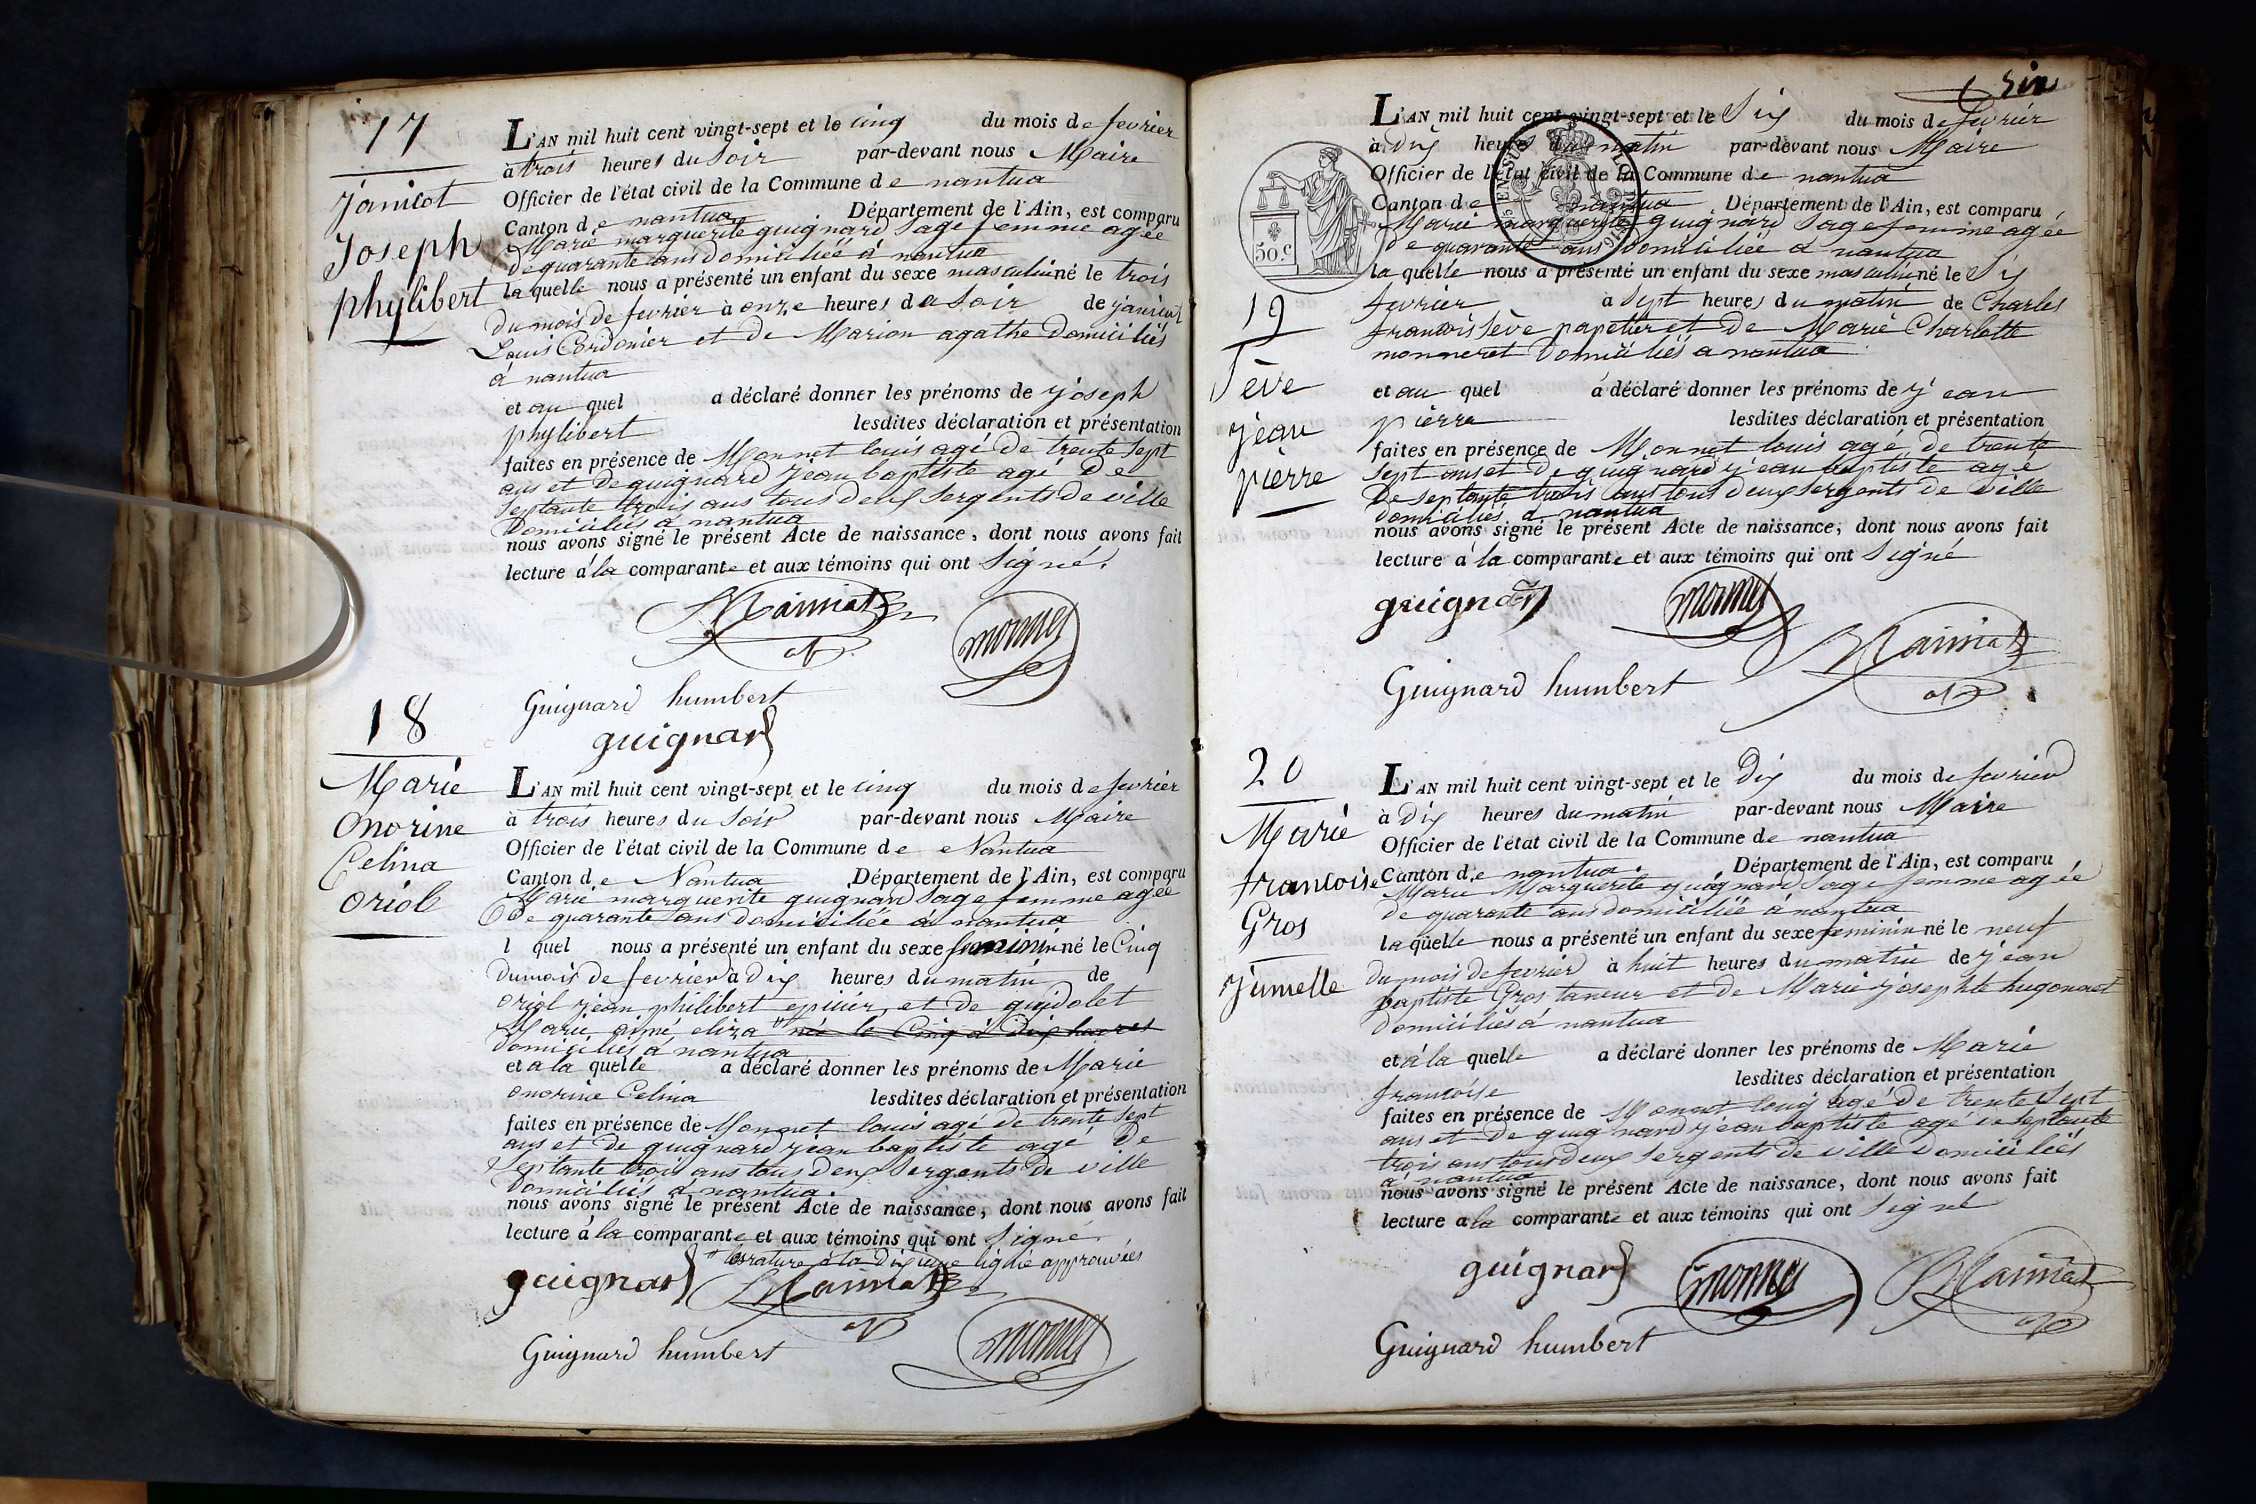 17
Janicot
Joseph
phylibert
L'AN mil huit cent vingt-sept et le cinq du mois de fevrier
à trois heures du Soir par-devant nous Maire
Officier de l'état civil de la Commune de nantua
Canton de nantua Département de l'Ain, est comparu
Marie marguerite guignard Sage femme agée
de quarante ans domiciliée à nantua
la quelle nous a présenté un enfant du sexe masculin né le trois
du mois de fevrier à onze heures du Soir de janicot
Louis Cordonier et de Marion agathe domiciliés
à nantua
et au quel a déclaré donner les prénoms de joseph
phylibert lesdites déclaration et présentation
faites en présence de Monnet louis agé de trente Sept
ans et de guignard jean baptiste agé de
Septante trois ans tous deux Sergents de ville
domiciliés à nantua
nous avons signé le présent Acte de naissance, dont nous avons fait
lecture à la comparante et aux témoins qui ont Signé.
monnet
Guignard humbert
guignard
18
Marie
Onorine
Celina
oriol
L'AN mil huit cent vingt-sept et le cinq du mois de fevrier
à trois heures du Soir par-devant nous Maire
Officier de l'état civil de la Commune de Nantua
Canton de Nantua Département de l'Ain, est comparu
Marie marguerite guignard Sage femme agée
de quarante ans domiciliée à nantua
l quel nous a présenté un enfant du sexe feminin né le Cinq
du mois de fevrier à dix heures du matin de
oriol jean philibert epicier, et de guidolet
Marie aimé eliza née le Cinq à dix heures
domiciliés à nantua
et à la quelle a déclaré donner les prénoms de Marie
onorine Celina lesdites déclaration et présentation
faites en présence de Monnet louis agé de trente Sept
ans et de guignard jean baptiste agé de
Septante trois ans tous deux Sergents de ville
domiciliés à nantua.
nous avons signé le présent Acte de naissance, dont nous avons fait
lecture à la comparante et aux témoins qui ont Signé.
rature à la dixième ligne approuvées
guignard
Guignard humbert
monnet
Six
50.c
L'AN mil huit cent vingt-sept et le Six du mois de fevrier
à dix heures du matin par-devant nous Maire
Officier de l'état civil de la Commune de nantua
Canton de nantua Département de l'Ain, est comparu
Marie marguerite guignard Sage femme agée
de quarante ans domiciliée à nantua
la quelle nous a présenté un enfant du sexe masculin né le Six
19
fevrier à Sept heures du matin de Charles
francois Sève papetier et de Marie Charlotte
monneret domiciliés a nantua
Sève
jean
pierre
et au quel a déclaré donner les prénoms de jean
pierre lesdites déclaration et présentation
faites en présence de Monnet louis agé de trente
Sept ans et de guignard jean baptiste agé
de septante trois ans tous deux Sergents de ville
domiciliés à nantua
nous avons signé le présent Acte de naissance, dont nous avons fait
lecture à la comparante et aux témoins qui ont Signé
guignard
monnet
Guignard humbert
20
Marie
francoise
Gros
jumelle
L'AN mil huit cent vingt-sept et le Dix du mois de fevrier
à dix heures du matin par-devant nous Maire
Officier de l'état civil de la Commune de nantua
Canton de nantua Département de l'Ain, est comparu
Marie Marguerite guignard Sage femme agée
de quarante ans domiciliée à nantua
la quelle nous a présenté un enfant du sexe feminin né le neuf
du mois de fevrier à huit heures du matin de jean
baptiste Gros taneur et de Marie josephte hugonnet
domiciliés à nantua
et à la quelle a déclaré donner les prénoms de Marie
francoise lesdites déclaration et présentation
faites en présence de Monnet louis agé de trente Sept
ans et de guignard jean baptiste agé de Septante
trois ans tous deux Sergents de ville domiciliés
à nantua
nous avons signé le présent Acte de naissance, dont nous avons fait
lecture a la comparante et aux témoins qui ont Signé
guignard
monnet
Guignard humbert